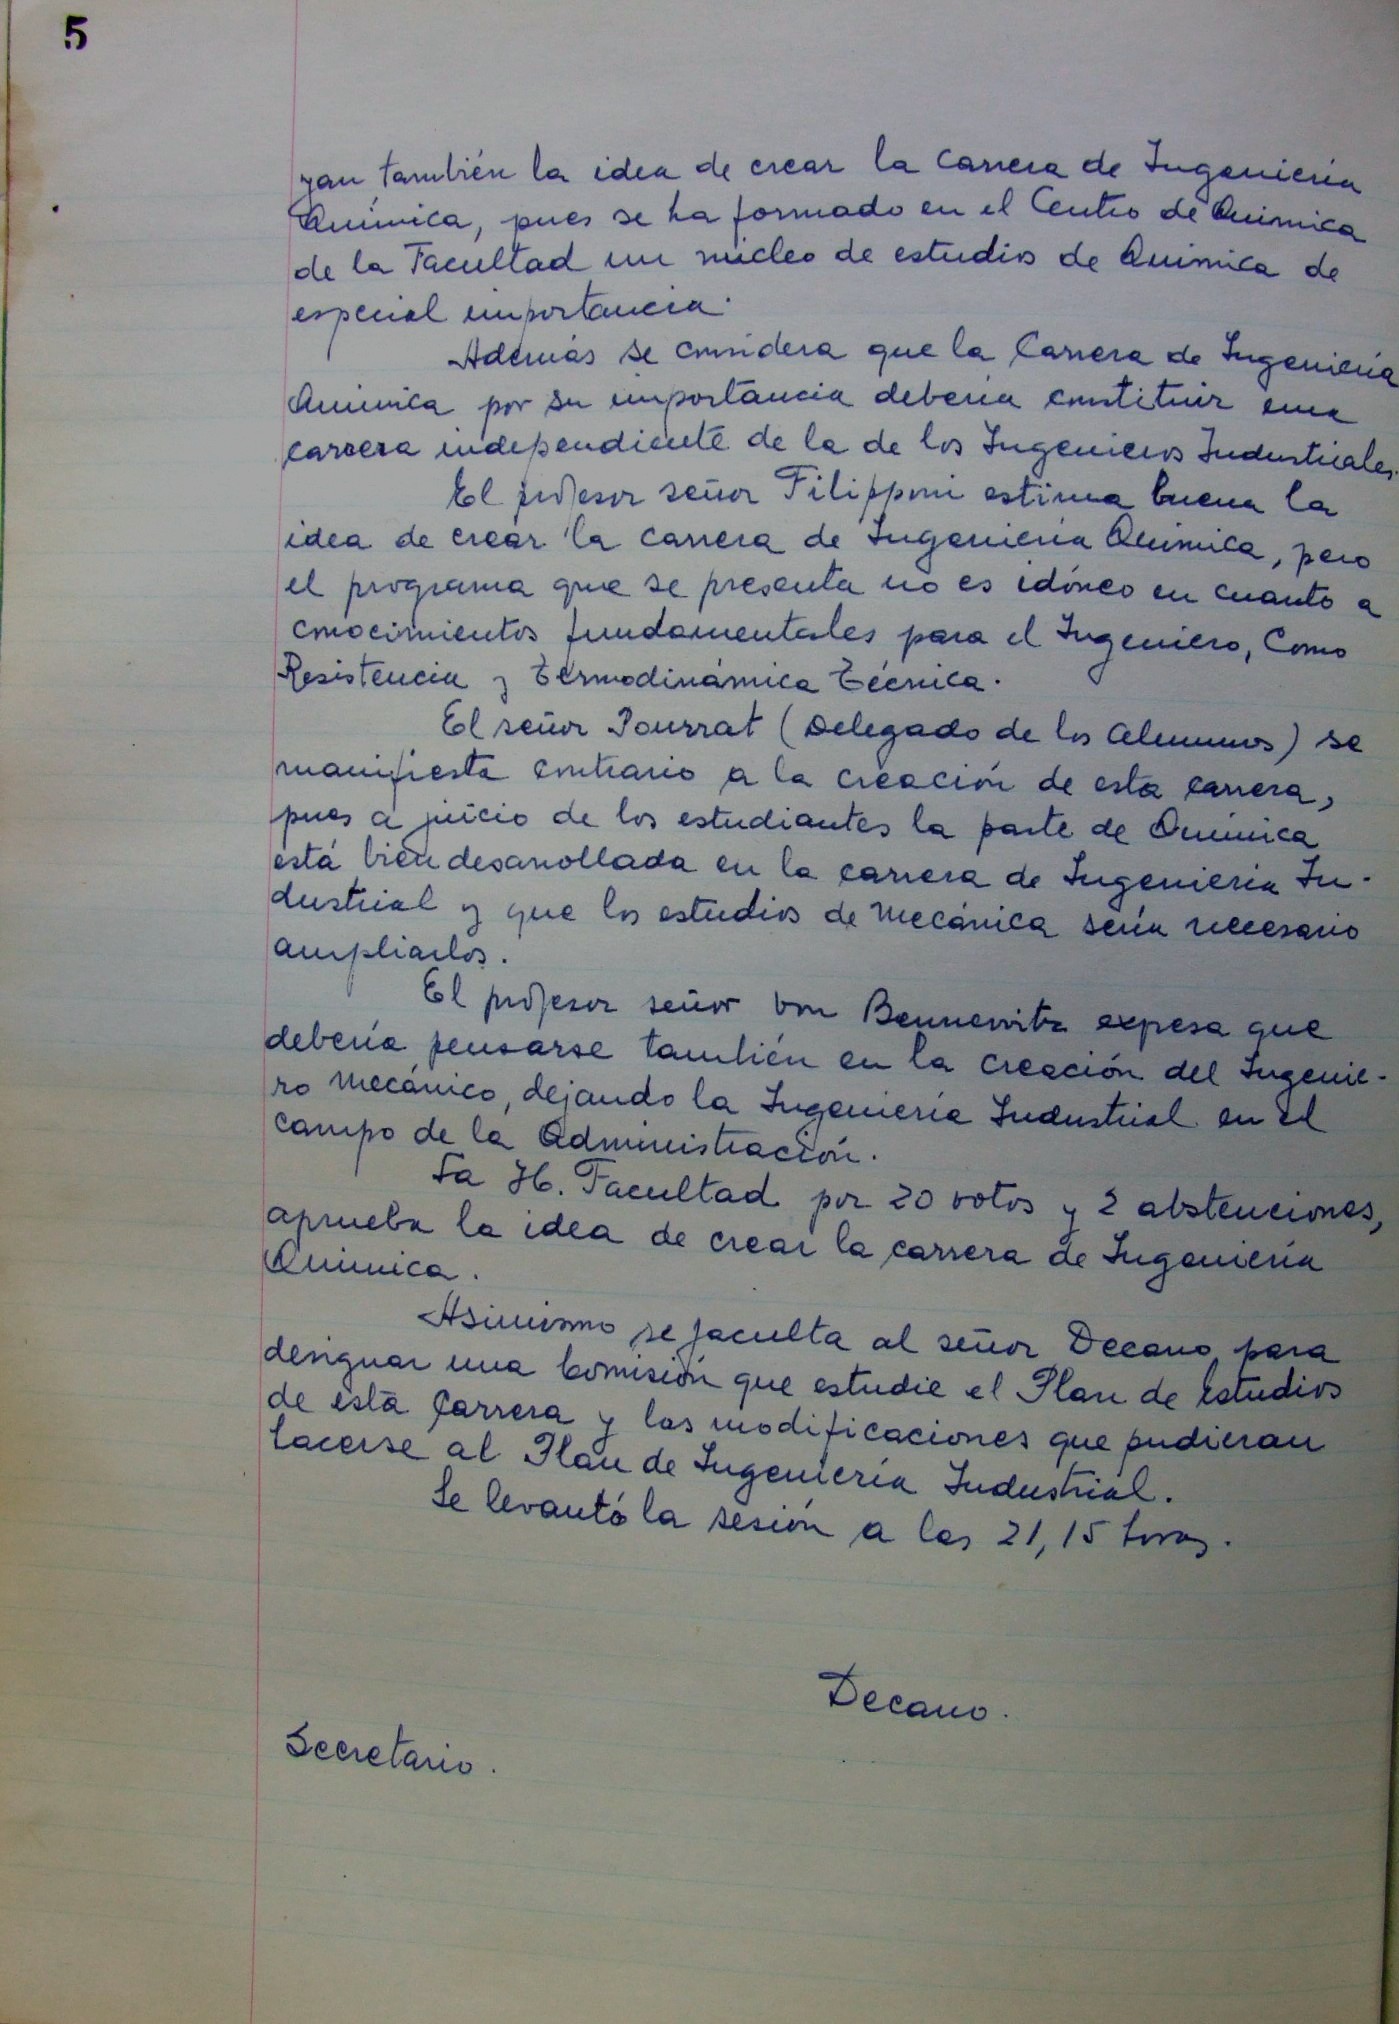 5
yan también la idea de crear la carrera de Ingeniería
Química, pues se ha formado en el Centro de Química
de la Facultad un núcleo de estudios de Química de
especial importancia.
Además se considera que la Carrera de Ingeniería
Química por su importancia debería constituir una
carrera independiente de la de los Ingenieros Industriales.
El profesor señor Filipponi estima buena la
idea de crear la carrera de Ingeniería Química, pero
el programa que se presenta no es idóneo en cuanto a
conocimientos fundamentales para el Ingeniero, Como
Resistencia y Termodinámica Técnica.
El señor Pourrat (Delegado de los alumnos) se
manifiesta contrario a la creación de esta carrera,
pues a juicio de los estudiantes la parte de Química
está bien desarrollada en la carrera de Ingeniería In-
dustrial y que los estudios de Mecánica sería necesario
ampliarlos.
El profesor señor von Bennewitz expresa que
debería pensarse también en la creación del Ingenie-
ro Mecánico, dejando la Ingeniería Industrial en el
campo de la Administración.
La H. Facultad por 20 votos y 2 abstenciones,
aprueba la idea de crear la carrera de Ingeniería
Química.
Asimismo se faculta al señor Decano para
designar una Comisión que estudie el Plan de Estudios
de esta Carrera y las modificaciones que pudieran
hacerse al Plan de Ingeniería Industrial.
Se levantó la sesión a las 21,15 horas.
Decano.
Secretario.